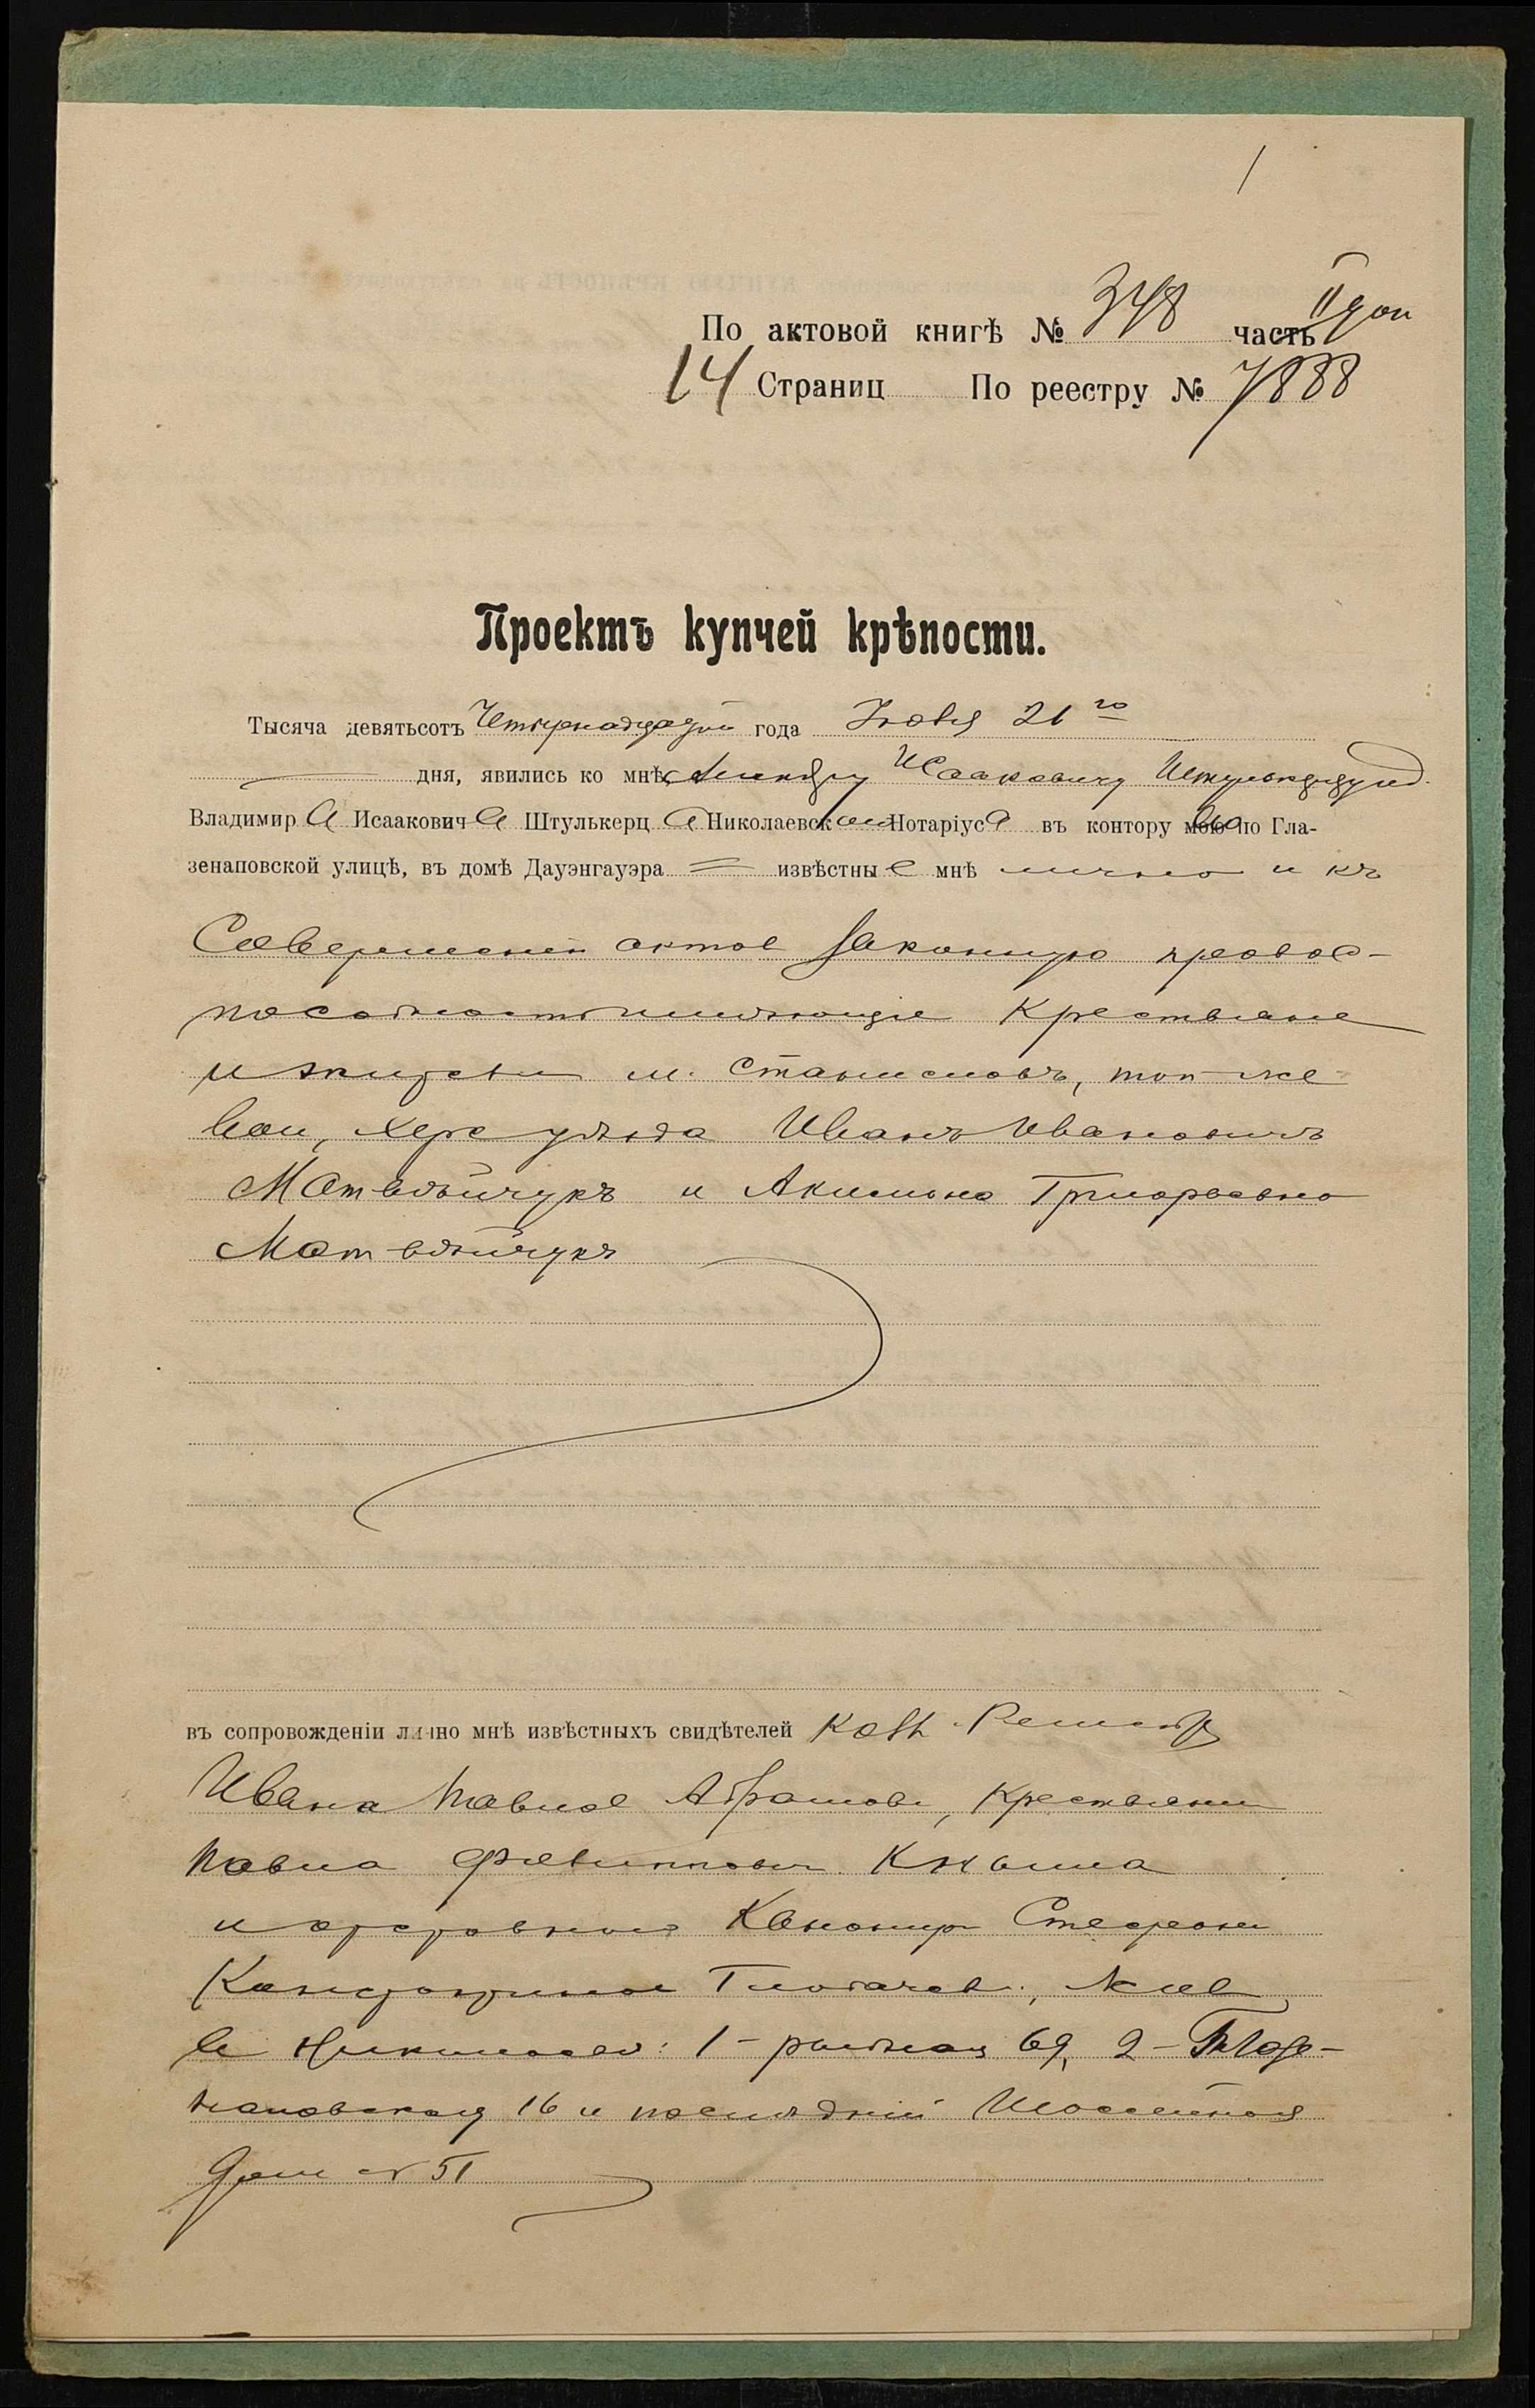 1
По актовой книгѣ № 348 часть II доп
14 Страниц По реестру № 7888
Проектъ купчей крѣпости.
Тысяча девятьсотъ Четырнадцатый года 21 го
дня, явились ко мнѣ, Исааковичу
Владимир а Исаакович а Штулькерц а Николаевск Нотаріуса въ контору мою его по Гла-
зенаповской улицѣ, въ домѣ Дауэнгауэра извѣстны е мнѣ лично и къ
Совершенію актов законную правос-
пособность имѣющіе Крестьяне
и жители м. Станиславъ, той-же
вол, Херс уѣзда Иванъ Ивановичъ
Матвѣйчукъ и Акилина Григорьевна
Матвѣйчукъ
въ сопровожденіи лично мнѣ извѣстныхъ свидѣтелей Кол.
Ивана Павлов Абрамова, Крестьянин
Павла Филиппович
и Канонир Стефана
Жив
в Николаевѣ: 1- рыбная 69, 2- Глазе-
наповская 16 и послѣдній Шоссейная
дом № 51